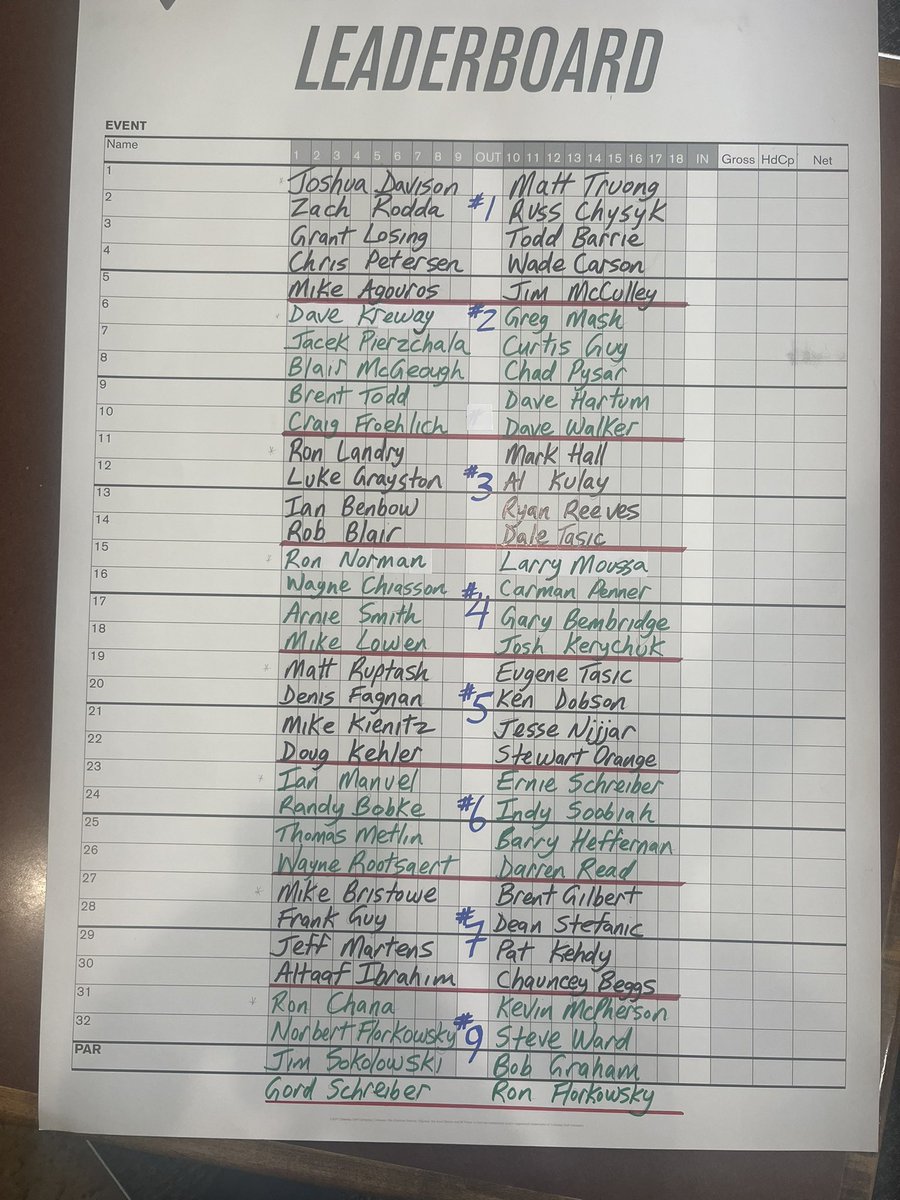 LEADERBOARD
EVENT
Name 1 2 3 4 5 6 7 8 9 OUT 10 11 12 13 14 15 16 17 18 IN Gross HdCp Net
1 Joshua Davison Matt Truong
2 Zach Rodda #1 Russ Chysyk
3 Grant Losing Todd Barrie
4 Chris Petersen Wade Carson
5 Mike Agouros Jim McCulley
6 Dave Kreway #2 Greg Mash
7 Jacek Pierzchala Curtis Guy
8 Blair McGeough Chad Pysar
9 Brent Todd Dave Hartum
10 Craig Froehlich Dave Walker
11 Ron Landry Mark Hall
12 Luke Grayston #3 Al Kulay
13 Ian Benbow Ryan Reeves
14 Rob Blair Dale Tasic
15 Ron Norman Larry Moussa
16 Wayne Chiasson #4 Carman Penner
17 Arnie Smith Gary Bembridge
18 Mike Lowen Josh Kerychuk
19 Matt Ruptash Eugene Tasic
20 Denis Fagnan #5 Ken Dobson
21 Mike Kienitz Jesse Nijjar
22 Doug Kehler Stewart Orange
23 Ian Manuel Ernie Schreiber
24 Randy Bobke #6 Indy Soobiah
25 Thomas Metlin Barry Heffernan
26 Wayne Rootsaert Darren Read
27 Mike Bristowe Brent Gilbert
28 Frank Guy #7 Dean Stefanic
29 Jeff Martens Pat Kehdy
30 Altaaf Ibrahim Chauncey Beggs
31 Ron Chana Kevin McPherson
32 Norbert Florkowsky #9 Steve Ward
PAR Jim Sokolowski Bob Graham
Gord Schreiber Ron Florkowsky